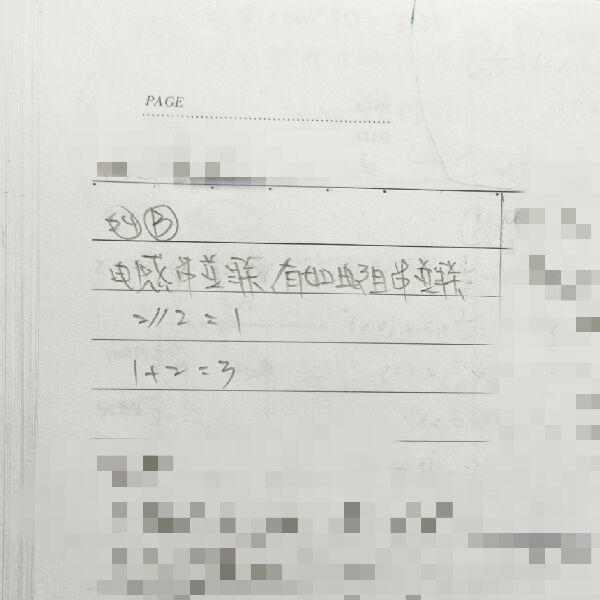 PAGE
64 B
电感串並联 有如电阻串並联
2//2 = 1
1+2=3